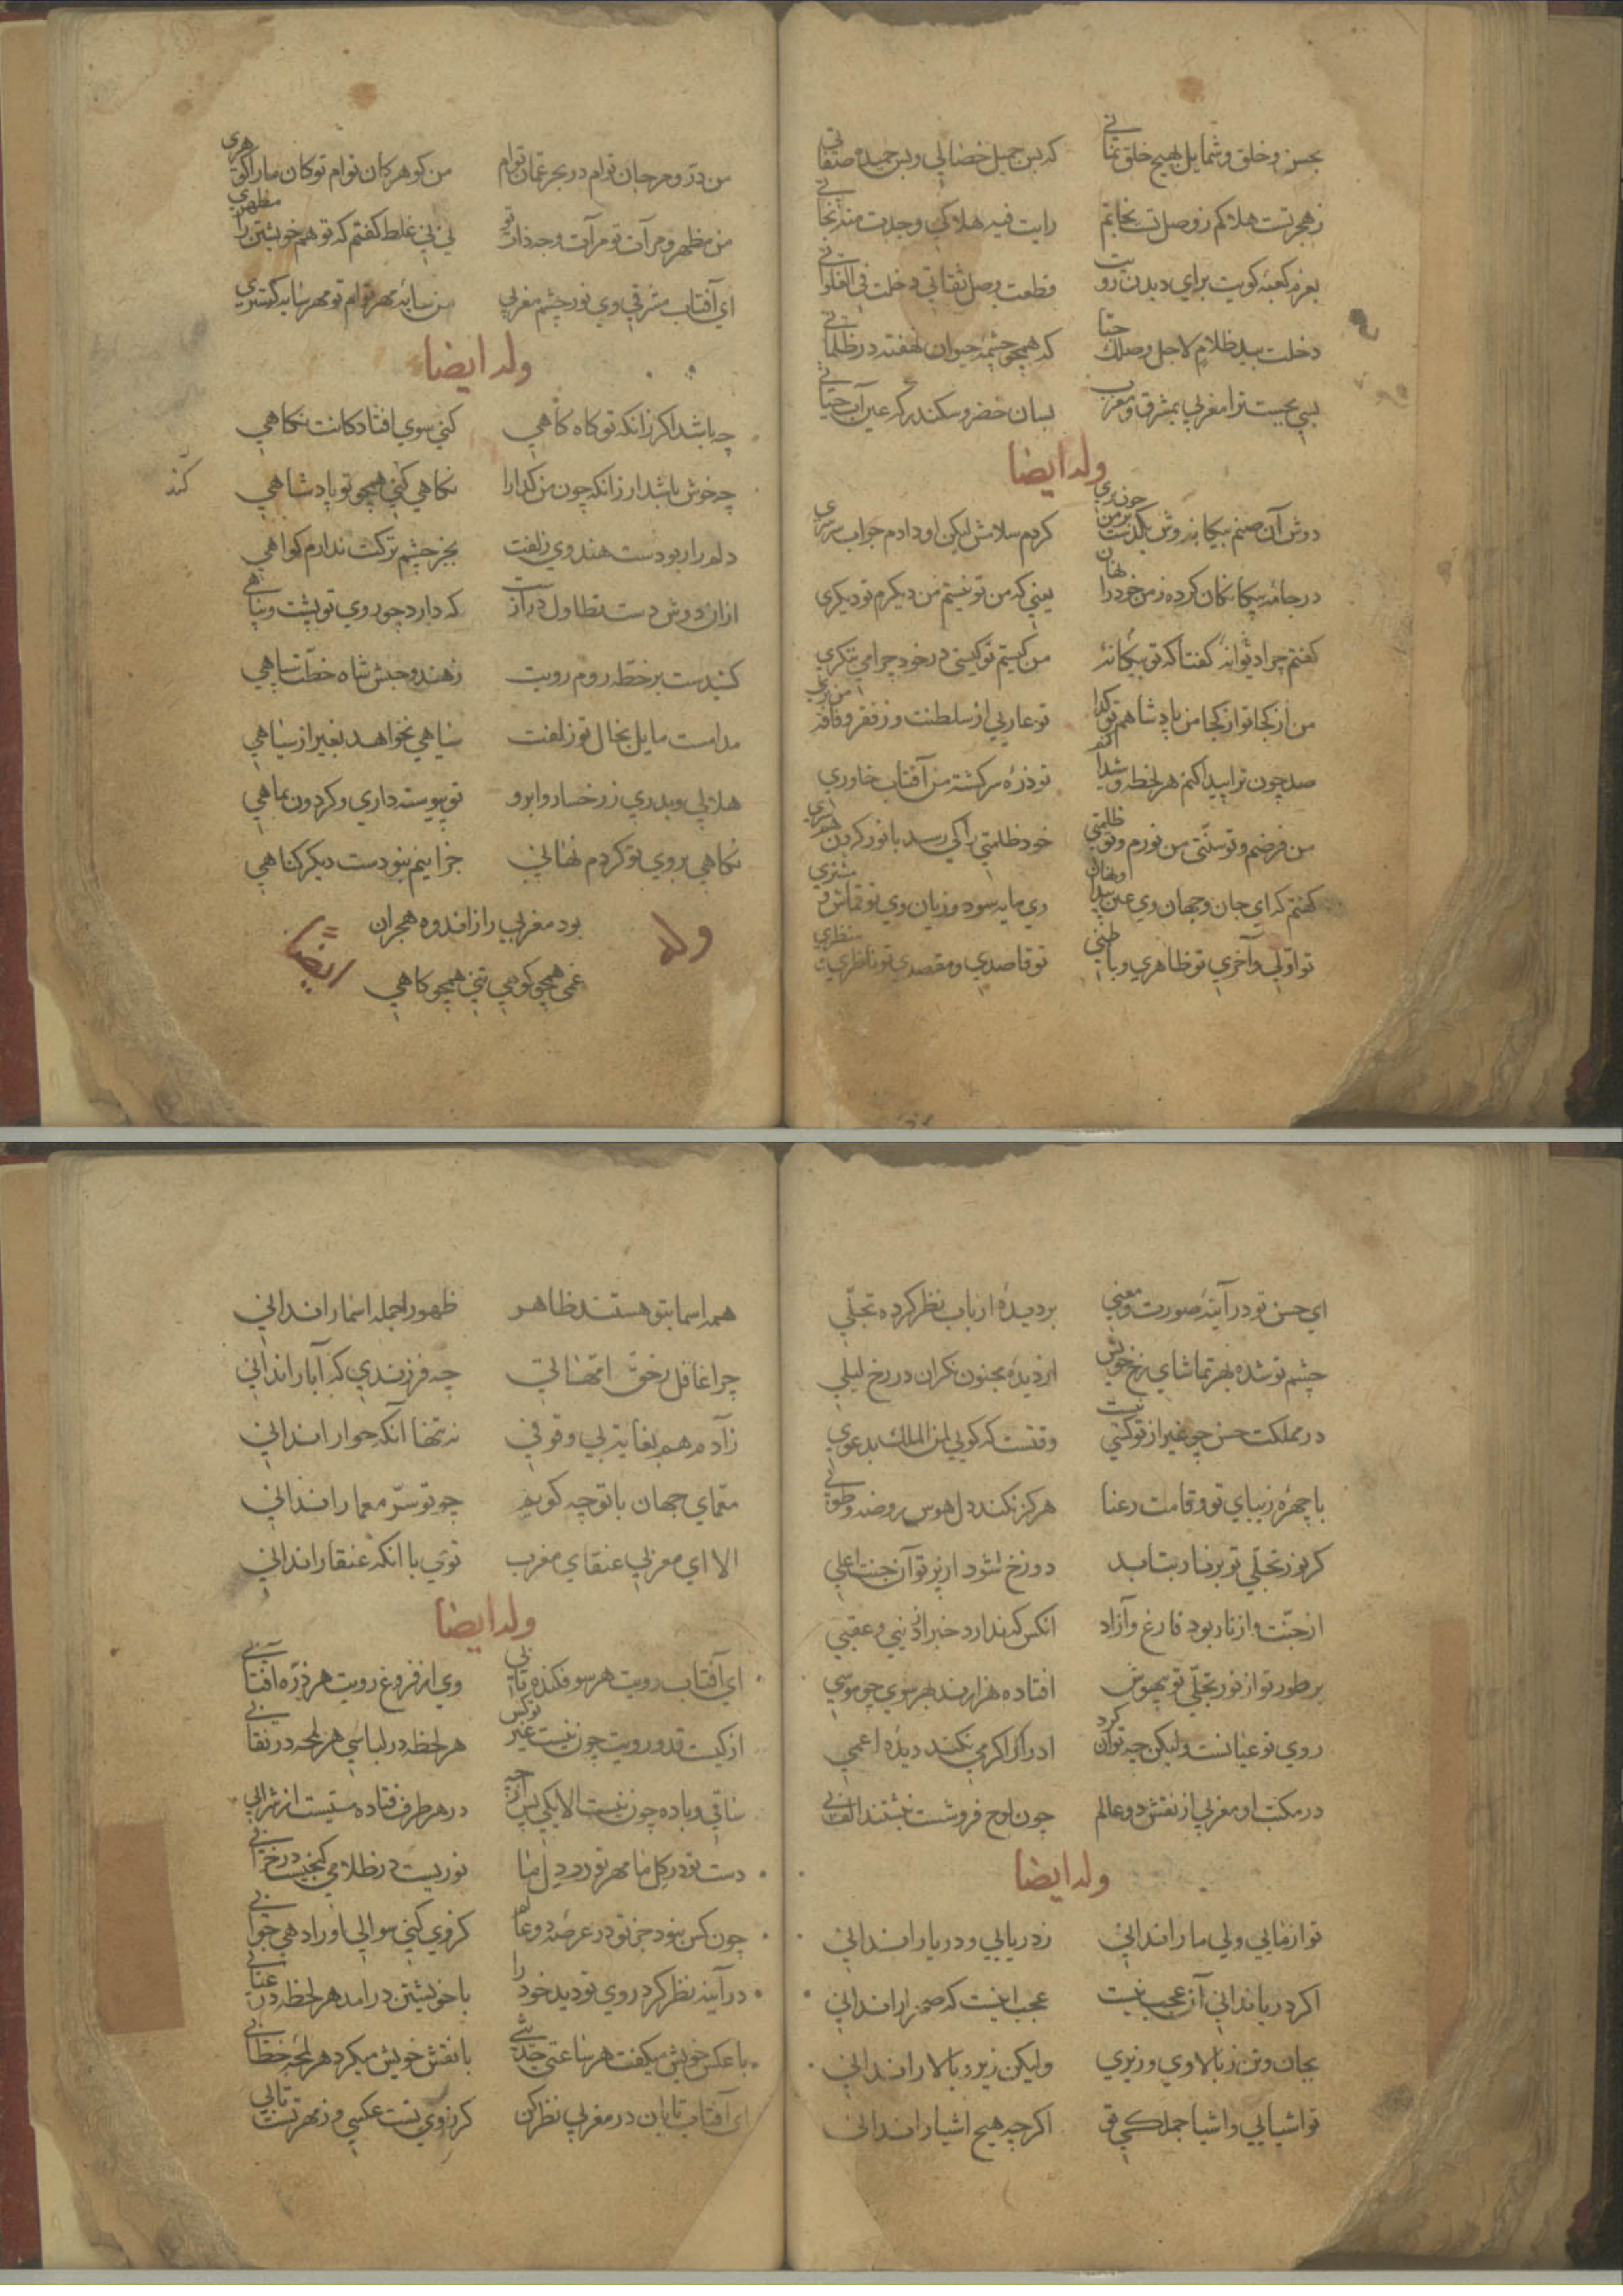 بحسن و خلق و شمایل بهیچ خلق نمانی که بس جمیل خصالی و بس حمیده صفاتی
ز هجر تست هلاکم ز وصل تست نجاتم رایت فیه هلاکی وجدت منه نجاتی
بعزم کعبهٔ کویت برای دیدن رویت قطعت وصل ثقاتی دخلت فی الفلواتی
دخلت بید ظلام لاجل وصلک حتا که همچو چشمهٔ حیوان نهفته در ظلماتی
بسی بجست ترا مغربی بمشرق و مغرب بسان خضر و سکندر که عین آب حیاتی
وله ایضا
دوش آن صنم بیکانه وش بکذشت بر من چون پری کردم سلامش لیکن او دادم جواب سرسری
در جامهٔ بیکانکان کرده ز من خود را نهان یعنی که من تو نیستم من دیکرم تو دیکری
کفتم چرا دیوانهٔ کفتا که تو بیکانهٔ من کیستم تو کیستی در خود چرا می ننکری
من از کجا تو از کجا من پادشاهم تو کدا تو عاریی از سلطنت وز فقر و فاقه من بری
صد چون ترا پیدا کنم هر لحظه و شیدا کنم تو ذرهٔ سرکشته من آفتاب خاوری
من فرضم و تو سنتی من نورم و تو ظلمتی خود ظلمتی را کی رسد با نور کردن همسری
کفتم که ای جان و جهان وی عین پیدا و نهان وی مایه سود و زیان وی تو قماش و مشتری
تو اولی و آخری تو ظاهری و باطنی تو قاصدی و مقصدی تو ناظری منظری
من در و مرجان توام در بحر عمان توام من کوهر کان توام تو کان ما را کوهری
من مظهر و مرآت تو مرآت وجه ذات تو نی نی غلط کفتم که تو هم خویشتن را مظهری
ای آفتاب مشرقی وی نور چشم مغربی من سایهٔ مهر توام تو مهر سایه کستری
وله ایضا
چه باشد اکر زانکه تو کاه کاهی کنی سوی افتادکانت نکاهی
چه خوش باشد ار زانکه چون من کدا را نکاهی کنی همچو تو پادشاهی
کند
دلم را ربودست هندوی زلفت بجز چشم ترکت ندارم کواهی
ازان دوش دست تطاول درازست که دارد چو روی تو پشت و پناهی
کشیدست بر خطه روم رویت ز هند و حبش شاه خطت سپاهی
مدامست مایل بخال تو زلفت سیاهی نخواهد بغیر از سیاهی
هلالی و بدری ز رخسار و ابرو تو پیوسته داری و کردون بماهی
نکاهی بروی تو کردم نهانی جز اینم نبودست دیکر کناهی
بود مغربی را ز اندوه هجران
غمی همچو کوهی تنی همچو کاهی
وله ایضا
ای حسن تو در آینهٔ صورت و معنی بر دیدهٔ ارباب نظر کرده تجلی
چشم تو شده بهر تماشای رخ خویش از دیدهٔ مجنون نکران در رخ لیلی
در مملکت حسن چو غیر از تو کسی نیست وقتست که کویی لمن الملک بدعوی
با چهرهٔ زیبای تو و قامت رعنا هرکز نکند دل هوس روضه و طوبی
کر نور تجلی تو بر نار بتابد دوزخ شود از پرتو آن جنت اعلی
از جنت و از نار بود فارغ و آزاد انکس که ندارد خبر از دنیی و عقبی
بر طور تو از نور تجلی تو بیهوش افتاده هزارند بهر سوی چو موسی
روی تو عیانست ولیکن چه توان کرد ادراک اکر می نکند دیدهٔ اعمی
در مکتب او مغربی از نقش دو عالم چون لوح فروشست نبشتند الف بی
وله ایضا
تو از مایی ولی ما را ندانی ز دریایی و دریا را ندانی
اکر دریا ندانی آن عجب نیست عجب اینست که صحرا را ندانی
بجان و تن ز بالاوی و زیری ولیکن زیر و بالا را ندانی
تو اشیایی و اشیا جملکی تو اکرچه هیچ اشیا را ندانی
همه اسما بتو هستند ظاهر ظهور جمله اسما را ندانی
چرا غافل ز حق امهاتی چه فرزندی که آبا را ندانی
ز آدم هم بغایت بی وقوفی نه تنها آنکه حوا را ندانی
معمای جهان با تو چه کویم چو تو سر معما را ندانی
الا ای مغربی عنقای مغرب تویی با آنکه عنقا را ندانی
وله ایضا
ای آفتاب رویت هر سو فکنده تابی وی از فروغ رویت هر ذره افتابی
از کیست قد و رویت چون نیست غیر تو کس هر لحظه در لباسی هر لمحه در نقابی
ساقی و باده چون نیست الا یکی پس از چه در هر طرف فتاده مستیست از شرابی
دست تو در کل ما مهر تو در دل ما نوریست در ظلامی کنجیست در خرابی
چون کس نبود جز تو در عرصهٔ دو عالم کز وی کنی سوالی او را دهی جوابی
در آینه نظر کرد روی تو دید خود را با خویشتن درامد هر لحظه در عتابی
با عکس خویش میکفت هر ساعتی حدیثی با نقش خویش میکرد هر لمحه خطابی
ای آفتاب تابان در مغربی نظر کن کز روی تست عکسی وز مهر تست تابی